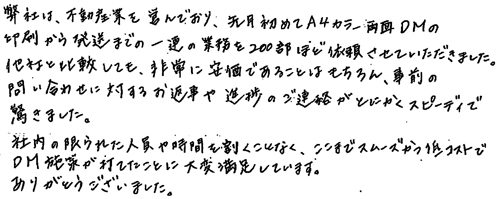 弊社は、不動産業を営んでおり、先月初めてA4カラー両面DMの
印刷から発送までの一連の業務を200部ほど依頼させていただきました。
他社と比較しても、非常に安価であることはもちろん、事前の
問い合わせに対するお返事や進捗のご連絡がとにかくスピーディで
驚きました。
社内の限られた人員や時間を割くことなく、ここまでスムーズかつ低コストで
DM施策が打てたことに大変満足しています。
ありがとうございました。